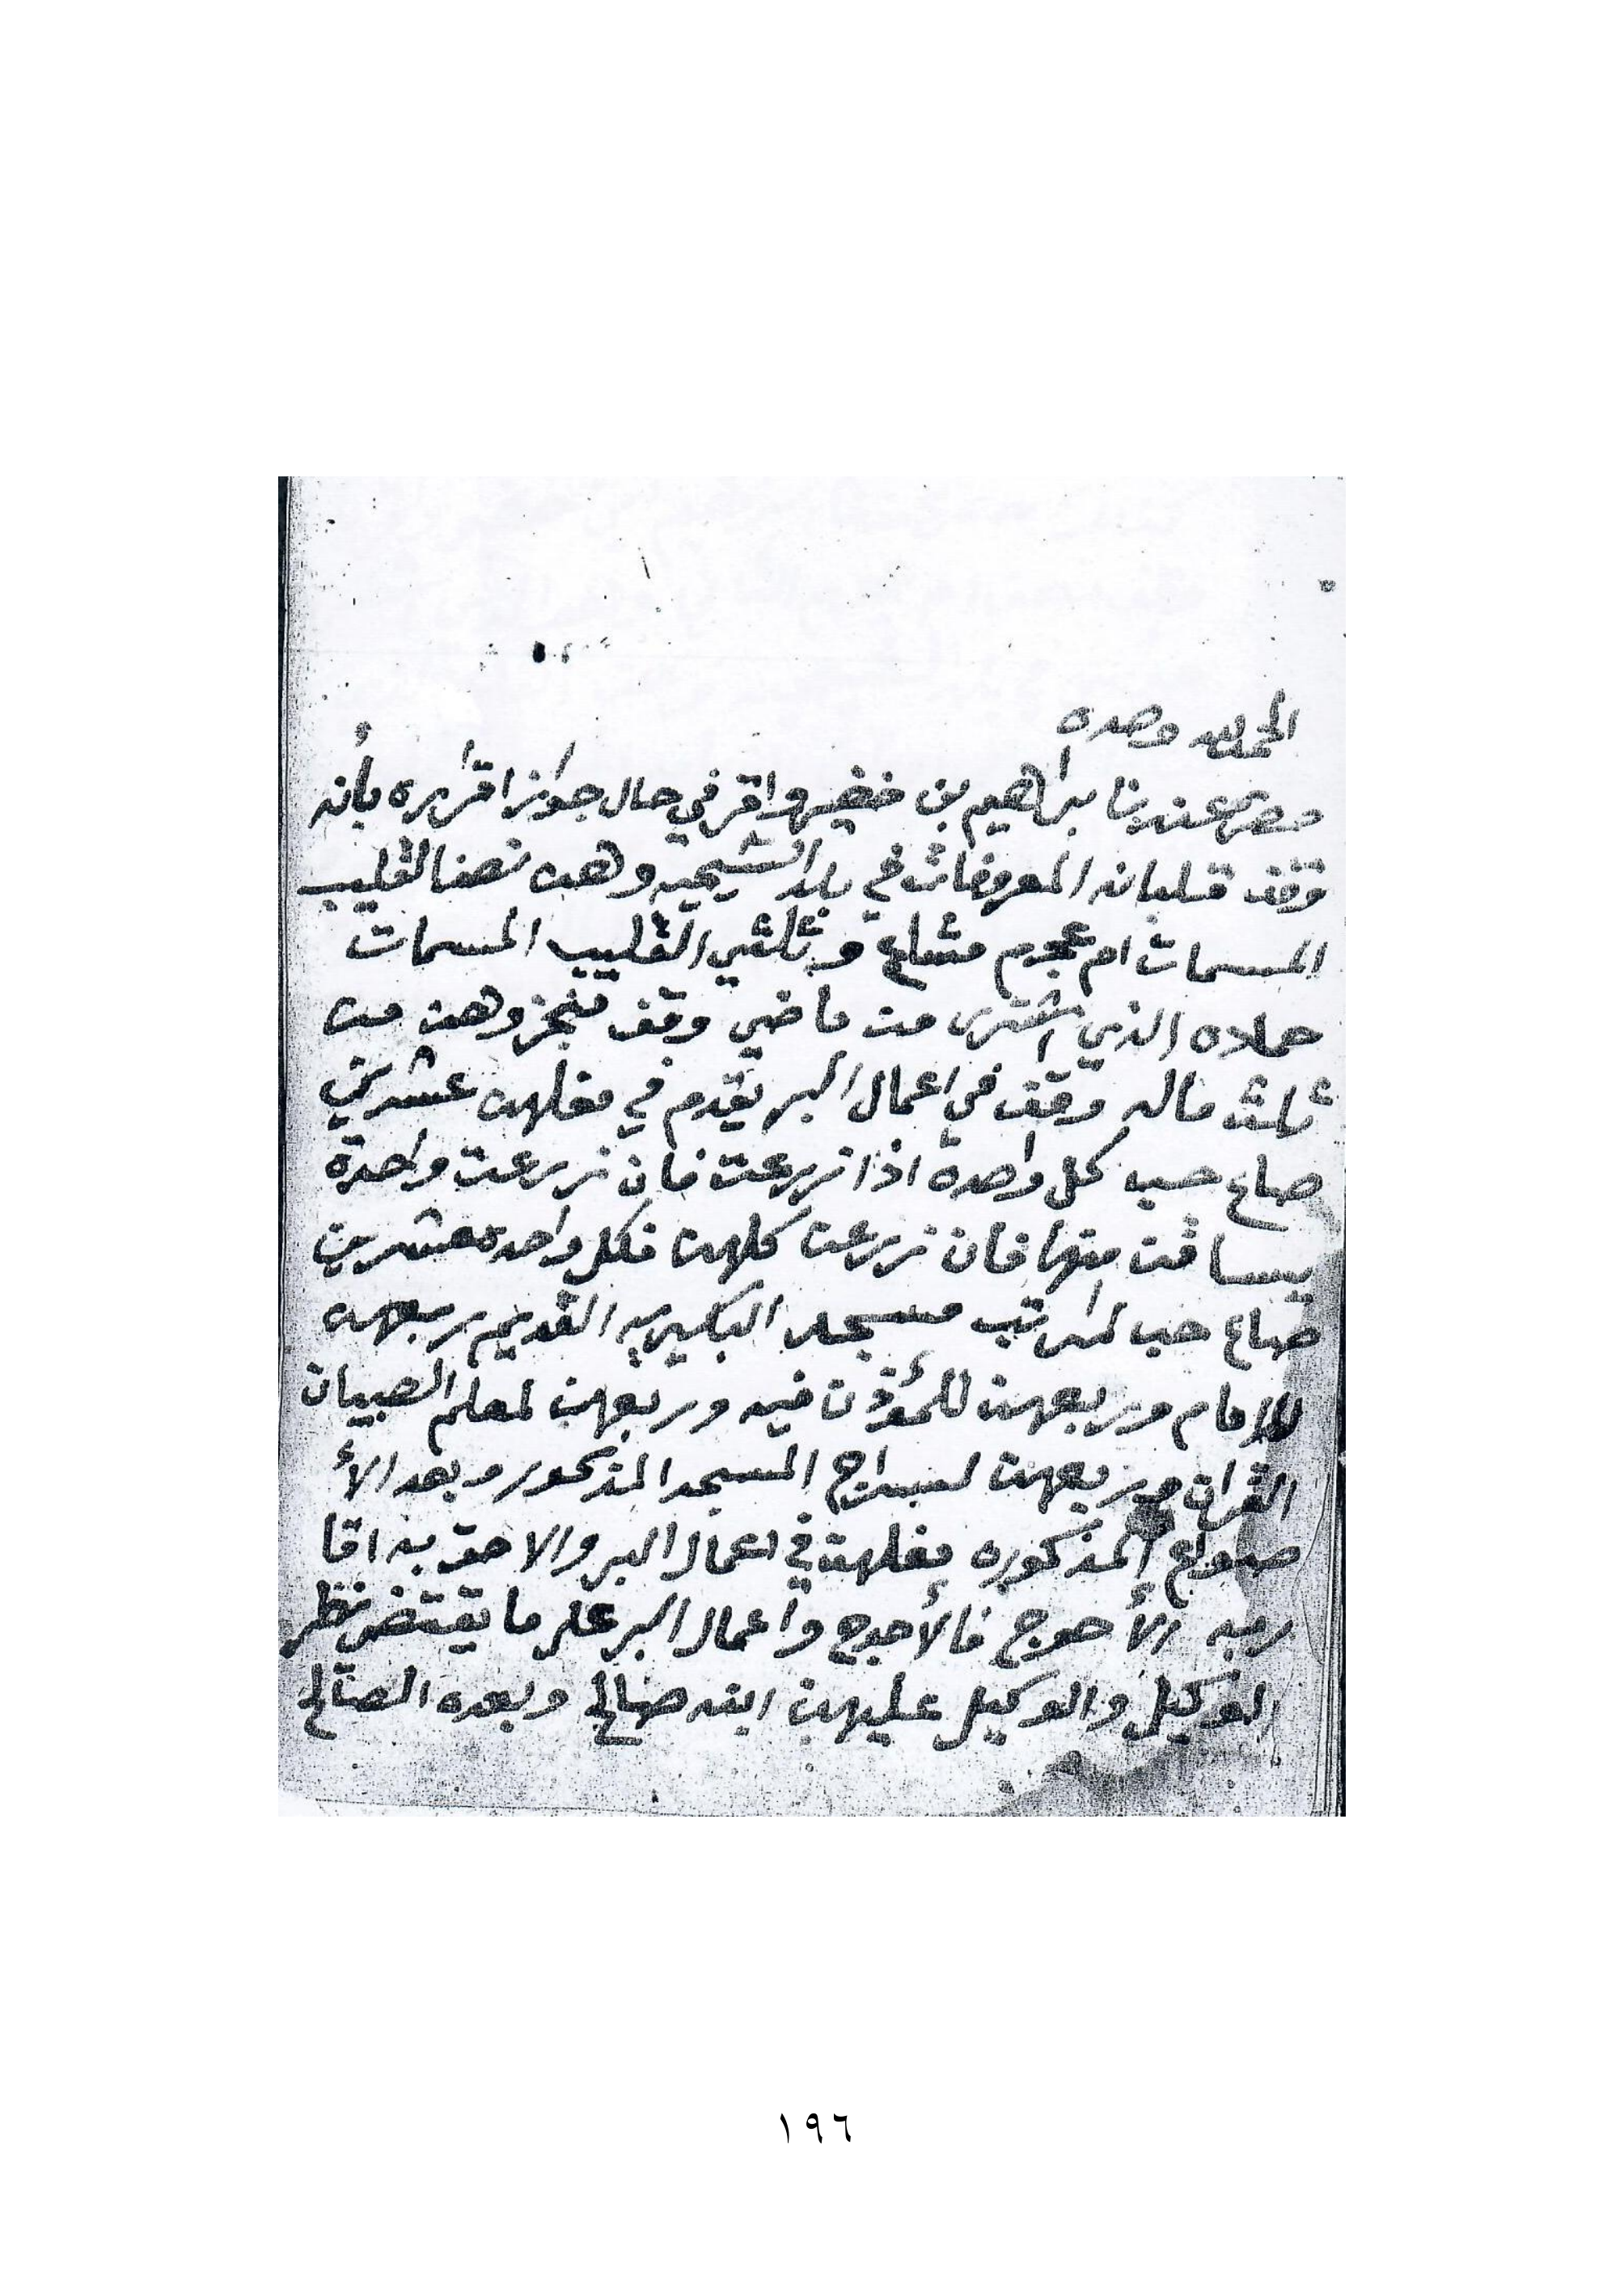 الحمد لله وحده
حضر عندنا براهيم بن خضير واقر في حال جواز اقراره بأنه
وقف قلبانه المعروفات في بلد الشيحيه وهن نصف القليب
المسمات ام عجرم مشاع وثلثي القليب المسمات
حملاه الذي اشترى من ماضي وقف منجز وهن من
ثلث ماله وقف في اعمال البر يقدم في مغلهن عشرين
صاع حب كل واحدة اذا زرعت فان زرعت واحدة
يساقت منها فان زرعت كلهن فكل واحده عشرين
صاع حب لمراتب مسجد البكيريه القديم ربعهن
للامام وربعهن للمؤذن فيه وربعهن لمعلم الصبيان
القران وربعهن لسراج المسجد المذكور وبعد الأ
صواع المذكوره مغلهن في اعمال البر والاحق به اقا
ربه الأحوج فالأحوج واعمال البر على ما يقتضي نظر
الوكيل والوكيل عليهن ابنه صالح وبعده الصالح
١٩٦